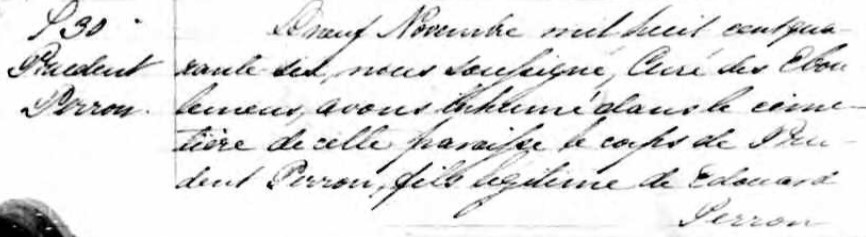 S 30
Prudent
Perron.
Le neuf Novembre mil huit cent qua-
rante-six, nous soussigné, Curé des Ebou-
lemens, avons inhumé dans le cime-
tière de cette paroisse le corps de Pru-
dent Perron, fils légitime de Edouard
Perron